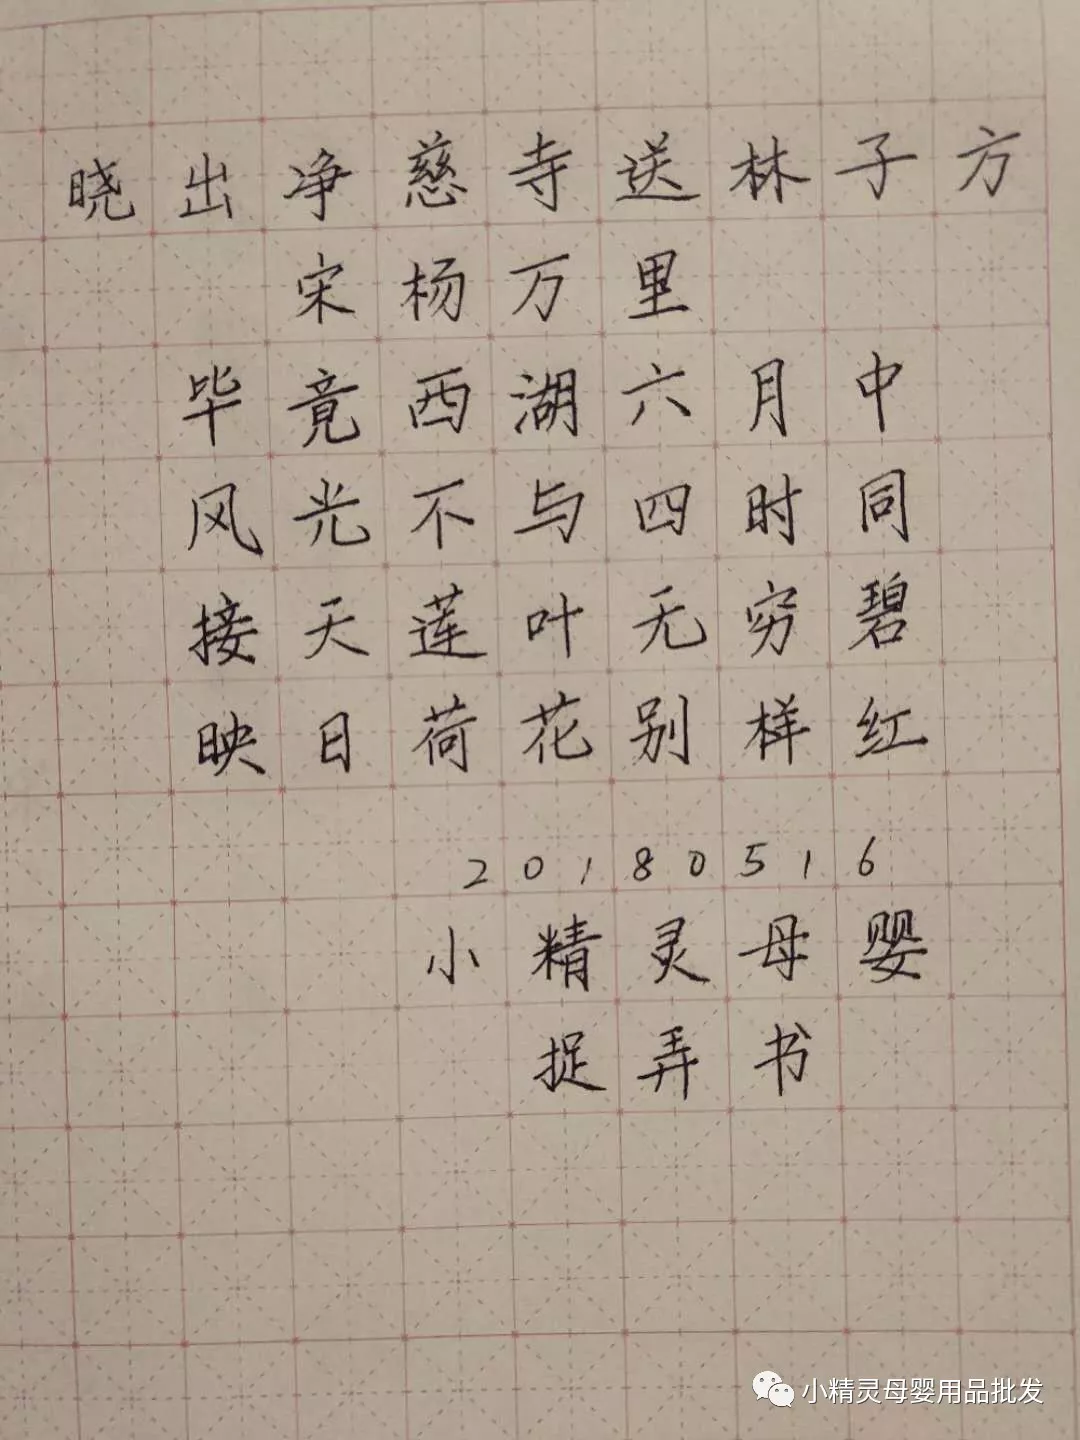 晓出净慈寺送林子方
宋杨万里
毕竟西湖六月中
风光不与四时同
接天莲叶无穷碧
映日荷花别样红
20180516
小精灵母婴
捉弄书
小精灵母婴用品批发